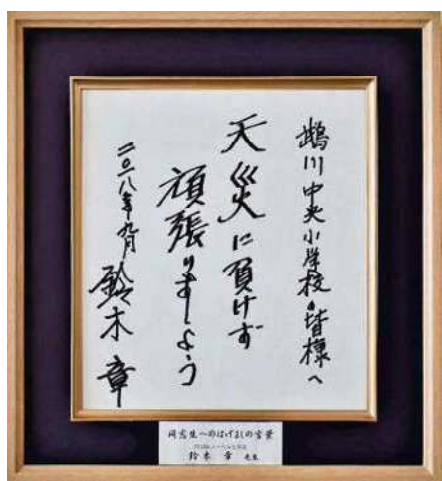 鵡川中央小学校の皆様へ
天災に負けず
頑張りましょう
二〇一八年九月
鈴木章
同窓生へのはげましの言葉
鈴木 章 先生